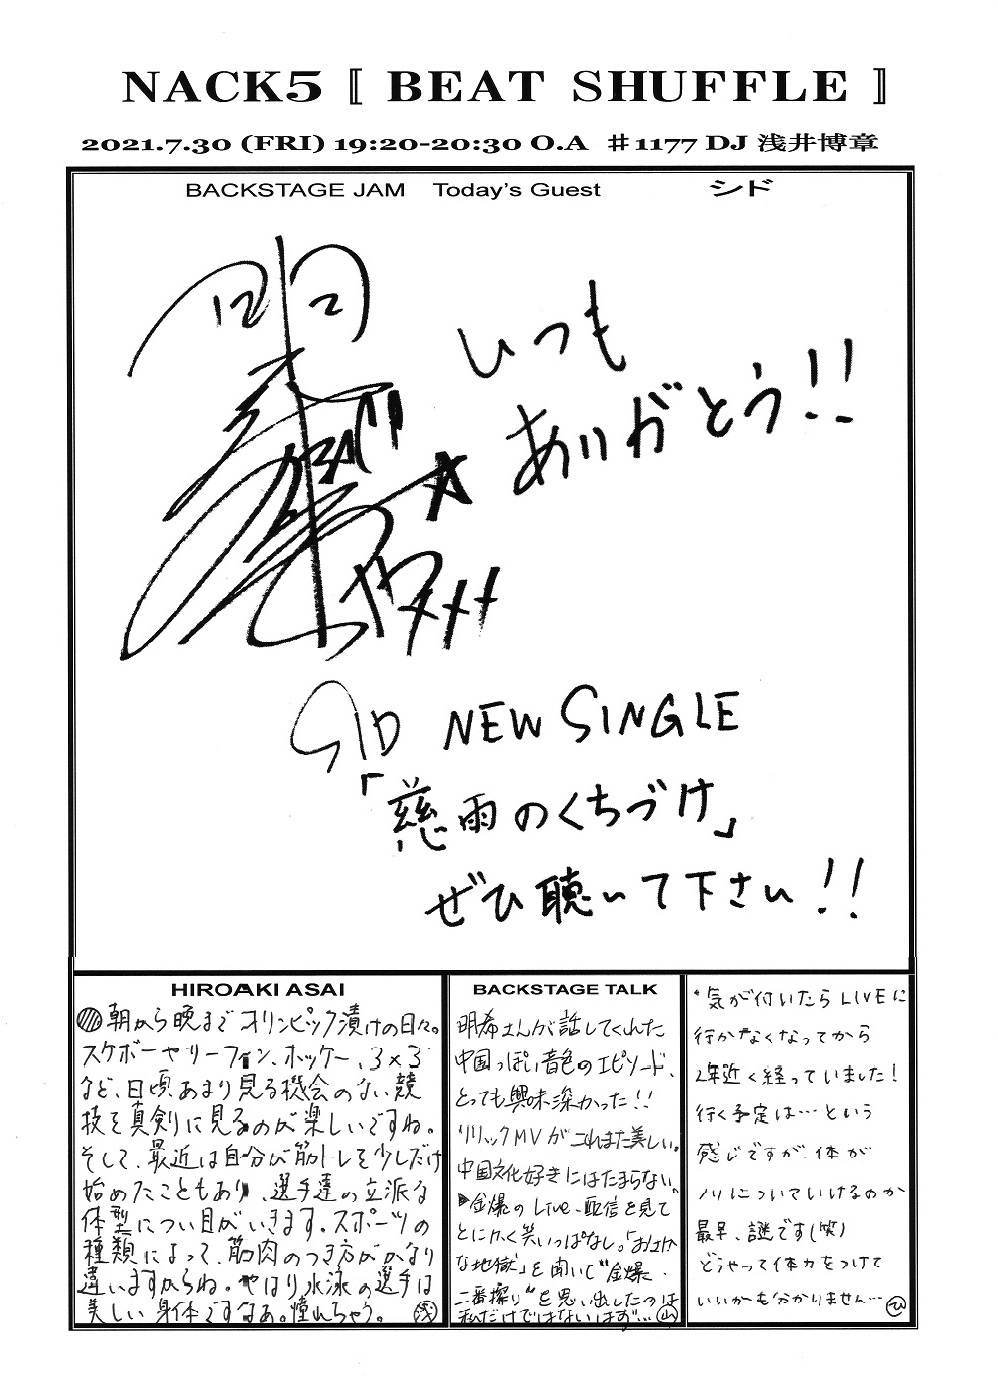 NACK5 〚 BEAT SHUFFLE 〛
2021.7.30 (FRI) 19:20-20:30 O.A ＃1177 DJ 浅井博章
BACKSTAGE JAM Today's Guest シド
いつも
ありがとう!!
SID NEW SINGLE
「慈雨のくちづけ」
ぜひ聴いて下さい!!
HIROAKI ASAI
朝から晩までオリンピック漬けの日々。
スケボーやサーフィン、ホッケー、3×3
など、日頃あまり見る機会のない競
技を真剣に見るのが楽しいですね。
そして、最近は自分が筋トレを少しだけ
始めたこともあり、選手達の立派な
体型につい目がいきます。スポーツの
種類によって、筋肉のつき方がかなり
違いますからね。やはり水泳の選手は
美しい身体ですなあ。憧れちゃう。 浅
BACKSTAGE TALK
明希さんが話してくれた
中国っぽい音色のエピソード、
とっても興味深かった!!
リリックMVがこれまた美しい。
中国文化好きにはたまらない
金爆のLive配信を見て
とにかく笑いっぱなし。「おさか
な地獄」を聞いて"金爆、
二番搾り"を思い出したのは
私だけではないはず… 山
・気が付いたらLIVEに
行かなくなってから
2年近く経っていました!
行く予定は…という
感じですが、体が
ノリについていけるのか
最早、謎です(笑)
どうやって体力をつけて
いいかも分かりません… ひ